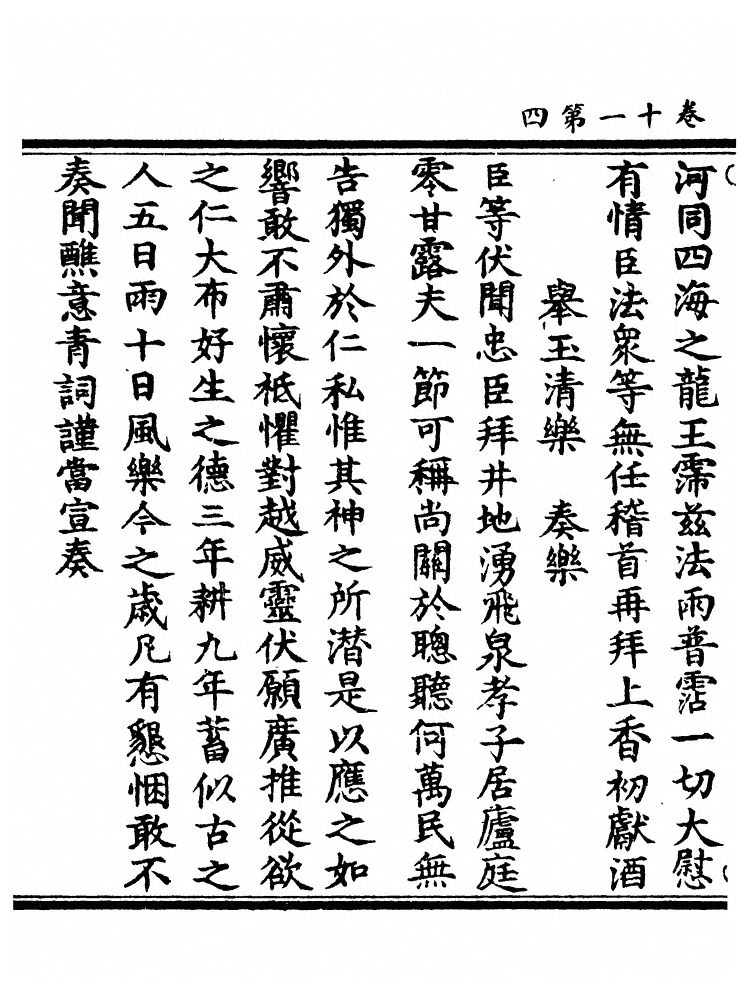 卷十一第四
河同四海之龍王霈茲法雨普霑一切大慰
有情臣法衆等無任稽首再拜上香初獻酒
舉玉清樂　奏樂
臣等伏聞忠臣拜井地湧飛泉孝子居廬庭
零甘露夫一節可稱尚關於聰聽何萬民無
告獨外於仁私惟其神之所潜是以應之如
響敢不肅懷祗懼對越威靈伏願廣推從欲
之仁大布好生之德三年耕九年蓄似古之
人五日雨十日風樂今之歲凡有懇悃敢不
奏聞醮意青詞謹當宣奏